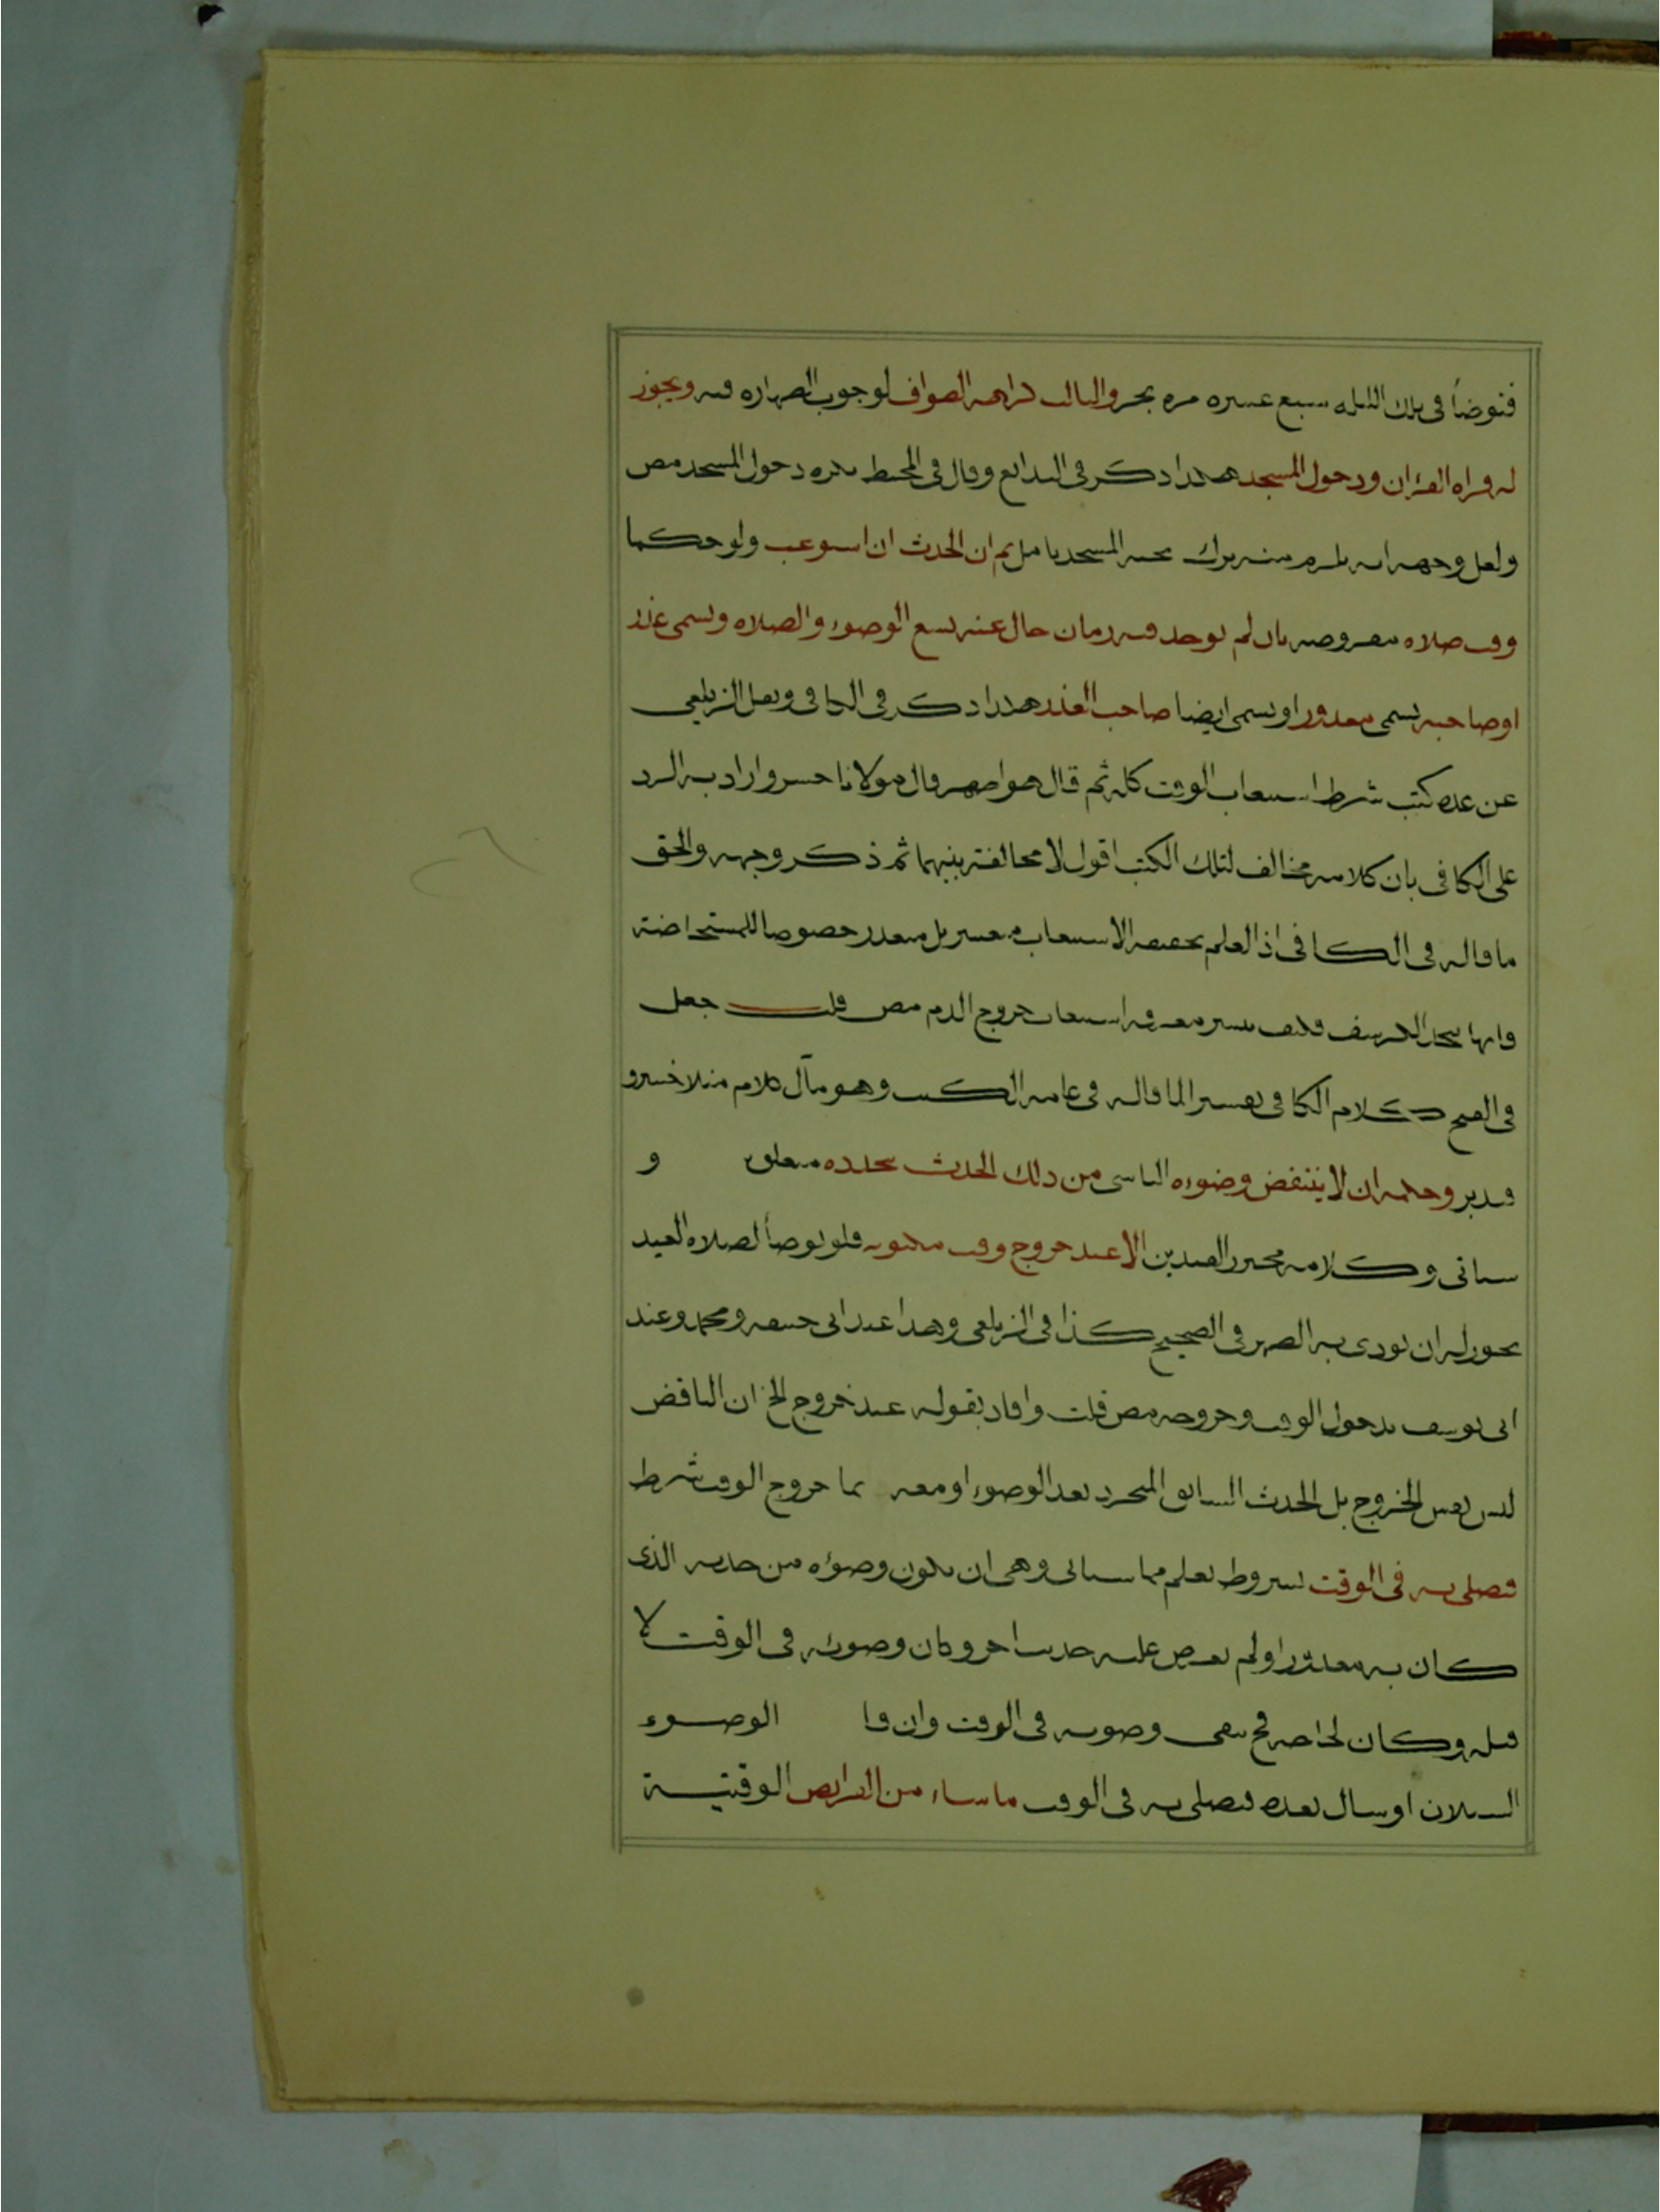 فتوضأ في تلك الليله سبع عسره مره بحر والثالث كراهه الطواف لوجوب الطهاره فيه ويجوز
له قراه القران ودخول المسجد هكذا ذكر في البدائع وقال في المحيط يكره دخول المسجد مص
ولعل وجهه انه يلزم منه ترك تحيه المسجد تامل ثم ان الحدث ان استوعب ولو حكما
وقت صلاه مفروضه بان لم يوجد فيه زمان خال عنه يسع الوضوء والصلاه ويسمى عذر
اوصاحبه يسمى معذورا ويسمى ايضا صاحب العذر هكذا ذكر في الكافي ونقل الزيلعي
عن عده كتب شرط استيعاب الوقت كله ثم قال هو اظهر وقال مولانا خسرو اراد به الرد
على الكافي بان كلامه مخالف لتلك الكتب اقول لا مخالفة بينهما ثم ذكر وجهه والحق
ما قاله في الكافي اذ العلم بحقيقه الاستيعاب متعسر بل متعذر خصوصا للمستحاضة
وانها الكرسف فكيف يتيسر معرفه استيعاب خروج الدم مص قلت جعل
في الفتح كلام الكافي تفسيرا لما قاله في عامه الكتب وهو مآل كلام منلا خسرو
فتدبر وحكمه ان لا ينتقض وضوءه الناشي من ذلك الحدث بتجدده متعلق و
سياتي وكلامه محترز القيدين الا عند خروج وقت مكتوبه فلو توضأ لصلاه العيد
يجوز له ان يودى به الظهر في الصحيح كذا في الزيلعي وهذا عند ابي حنيفه ومحمد وعند
ابى يوسف بدخول الوقت وخروجه مص قلت وافاد بقوله عند خروج الخ ان الناقض
ليس نفس الخروج بل الحدث السابق المتجرد بعد الوضوء او معه نما خروج الوقت شرط
فيصلى به في الوقت بشروط تعلم مما سياتي وهي ان يكون وضوؤه من حدثه الذي
كان به معذورا ولم يعرض عليه حدث اخر وكان وضوئه في الوقت لا
قبله وكان لحاجه فح يبقى وضوئه في الوقت وان قا الوضوء
السيلان او سال بعده فيصلى به في الوقت ما شاء من الفرائض الوقتية